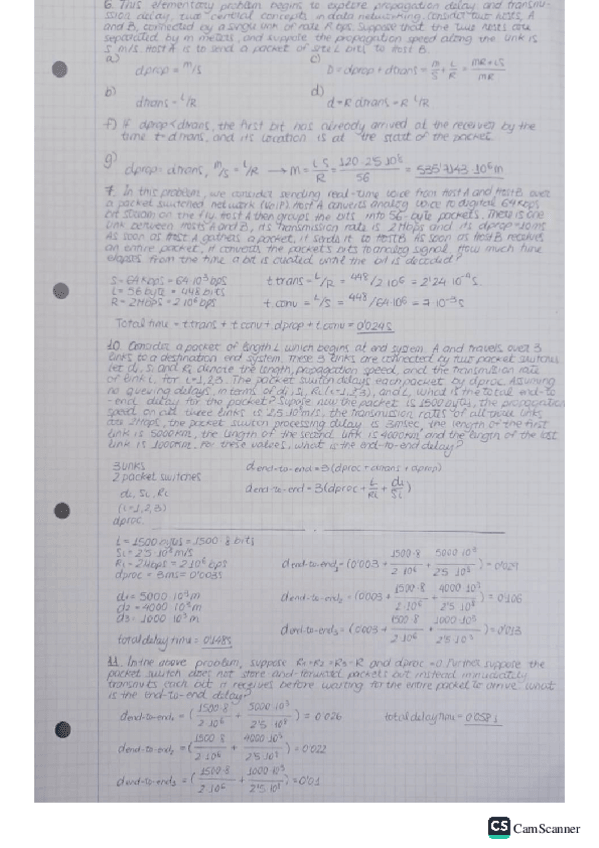 6. This elementary problem begins to explore propagation delay and transmi-
ssion delay, two central concepts in data networking. Consider two hosts, A
and B, connected by a single link of rate R bps. Suppose that the two hosts are
separated by m meters, and suppose the propagation speed along the link is
s m/s. Host A is to send a packet of size L bits to Host B.
a) c)
dprop = m/s D = dprop + dtrans = m/s + L/R = mR+LS/mR
b) d)
dtrans = L/R d = R dtrans = R L/R
f) If dprop < dtrans, the first bit has already arrived at the receiver by the
time t = dtrans, and its location is at the start of the packet.
g) dprop = dtrans, m/s = L/R → m = LS/R = 120·2'5·10⁸/56 = 535'7143·10⁶m
7. In this problem, we consider sending real-time voice from Host A and Host B over
a packet switched network (VoIP). Host A converts analog voice to digital 64 Kbps
bit stream on the fly. Host A then groups the bits into 56-byte packets. There is one
link between Hosts A and B, its transmission rate is 2 Mbps and its dprop = 10ms.
As soon as Host A gathers a packet, it sends it to Host B. As soon as Host B receives
an entire packet, it converts the packet's bits to analog signal. How much time
elapses from the time a bit is created until the bit is decoded?
S = 64 Kbps = 64·10³ bps t.trans = L/R = 448/2·10⁶ = 2'24·10⁻⁴s.
L = 56 byte = 448 bits
R = 2MBPS = 2·10⁶ bps t.conv = L/S = 448/64·10⁶ = 7·10⁻³s
Total time = t.trans + t.conv + dprop + t.conv = 0'024s
10. Consider a packet of length L which begins at end system. A and travels over 3
links to a destination end system. These 3 links are connected by two packet switches
let di, si and Ri denote the length, propagation speed, and the transmission rate
of link i, for i=1,2,3. The packet switch delays each packet by dproc. Assuming
no queuing delays, in terms of di, si, Ri (i=1,2,3), and L, what is the total end-to
-end delay for the packet? Supose now the packet is 1500 bytes, the propagation
speed on all three links is 2'5·10⁸m/s, the transmission rates of all three links
are 2 Mbps, the packet switch processing delay is 3 msec, the length of the first
link is 5000km, the length of the second link is 4000km and the length of the last
link is 1000km. For these values, what is the end-to-end delay?
3 links dend-to-end = 3(dproc + dtrans + dprop)
2 packet switches
di, Si, Ri dend-to-end = 3(dproc + L/Ri + di/Si)
(i=1,2,3)
dproc.
L = 1500 bytes = 1500·8 bits
Si = 2'5·10⁸ m/s dend-to-end₁ = (0'003 + 1500·8/2·10⁶ + 5000·10³/2'5·10⁸) = 0'029
Ri = 2Mbps = 2·10⁶ bps
dproc = 3ms = 0'003s
d1 = 5000·10³m dend-to-end₂ = (0'003 + 1500·8/2·10⁶ + 4000·10³/2'5·10⁸) = 0'106
d2 = 4000·10³m
d3 = 1000·10³m dend-to-end₃ = (0'003 + 1500·8/2·10⁶ + 1000·10³/2'5·10⁸) = 0'013
total delay time = 0'148s
11. In the above problem, suppose R1=R2=R3=R and dproc=0. Further suppose the
packet switch does not store-and-forward packets but instead immediately
transmits each bit it receives before waiting for the entire packet to arrive. What
is the end-to-end delay?
dend-to-end₁ = (1500·8/2·10⁶ + 5000·10³/2'5·10⁸) = 0'026 total delay now = 0'058s
dend-to-end₂ = (1500·8/2·10⁶ + 4000·10³/2'5·10⁸) = 0'022
dend-to-end₃ = (1500·8/2·10⁶ + 1000·10³/2'5·10⁸) = 0'01
CS CamScanner